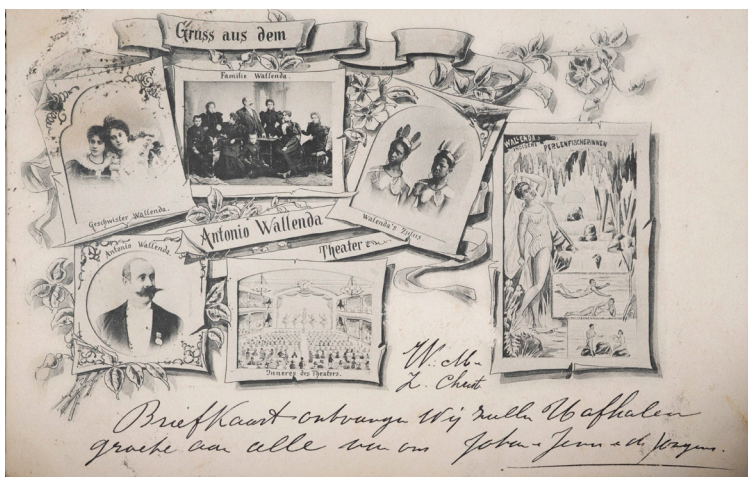 Gruss aus dem
Familie Wallenda.
Geschwister Wallenda.
Walenda's Zulus.
WALLENDA'S
PERLENFISCHERINNEN
Antonio Wallenda
Theater
Antonio Wallenda.
Inneres des Theaters.
W. M.
Z. Christ
Briefkaart ontvangen Wij zullen U afhalen
groete aan alle van ons